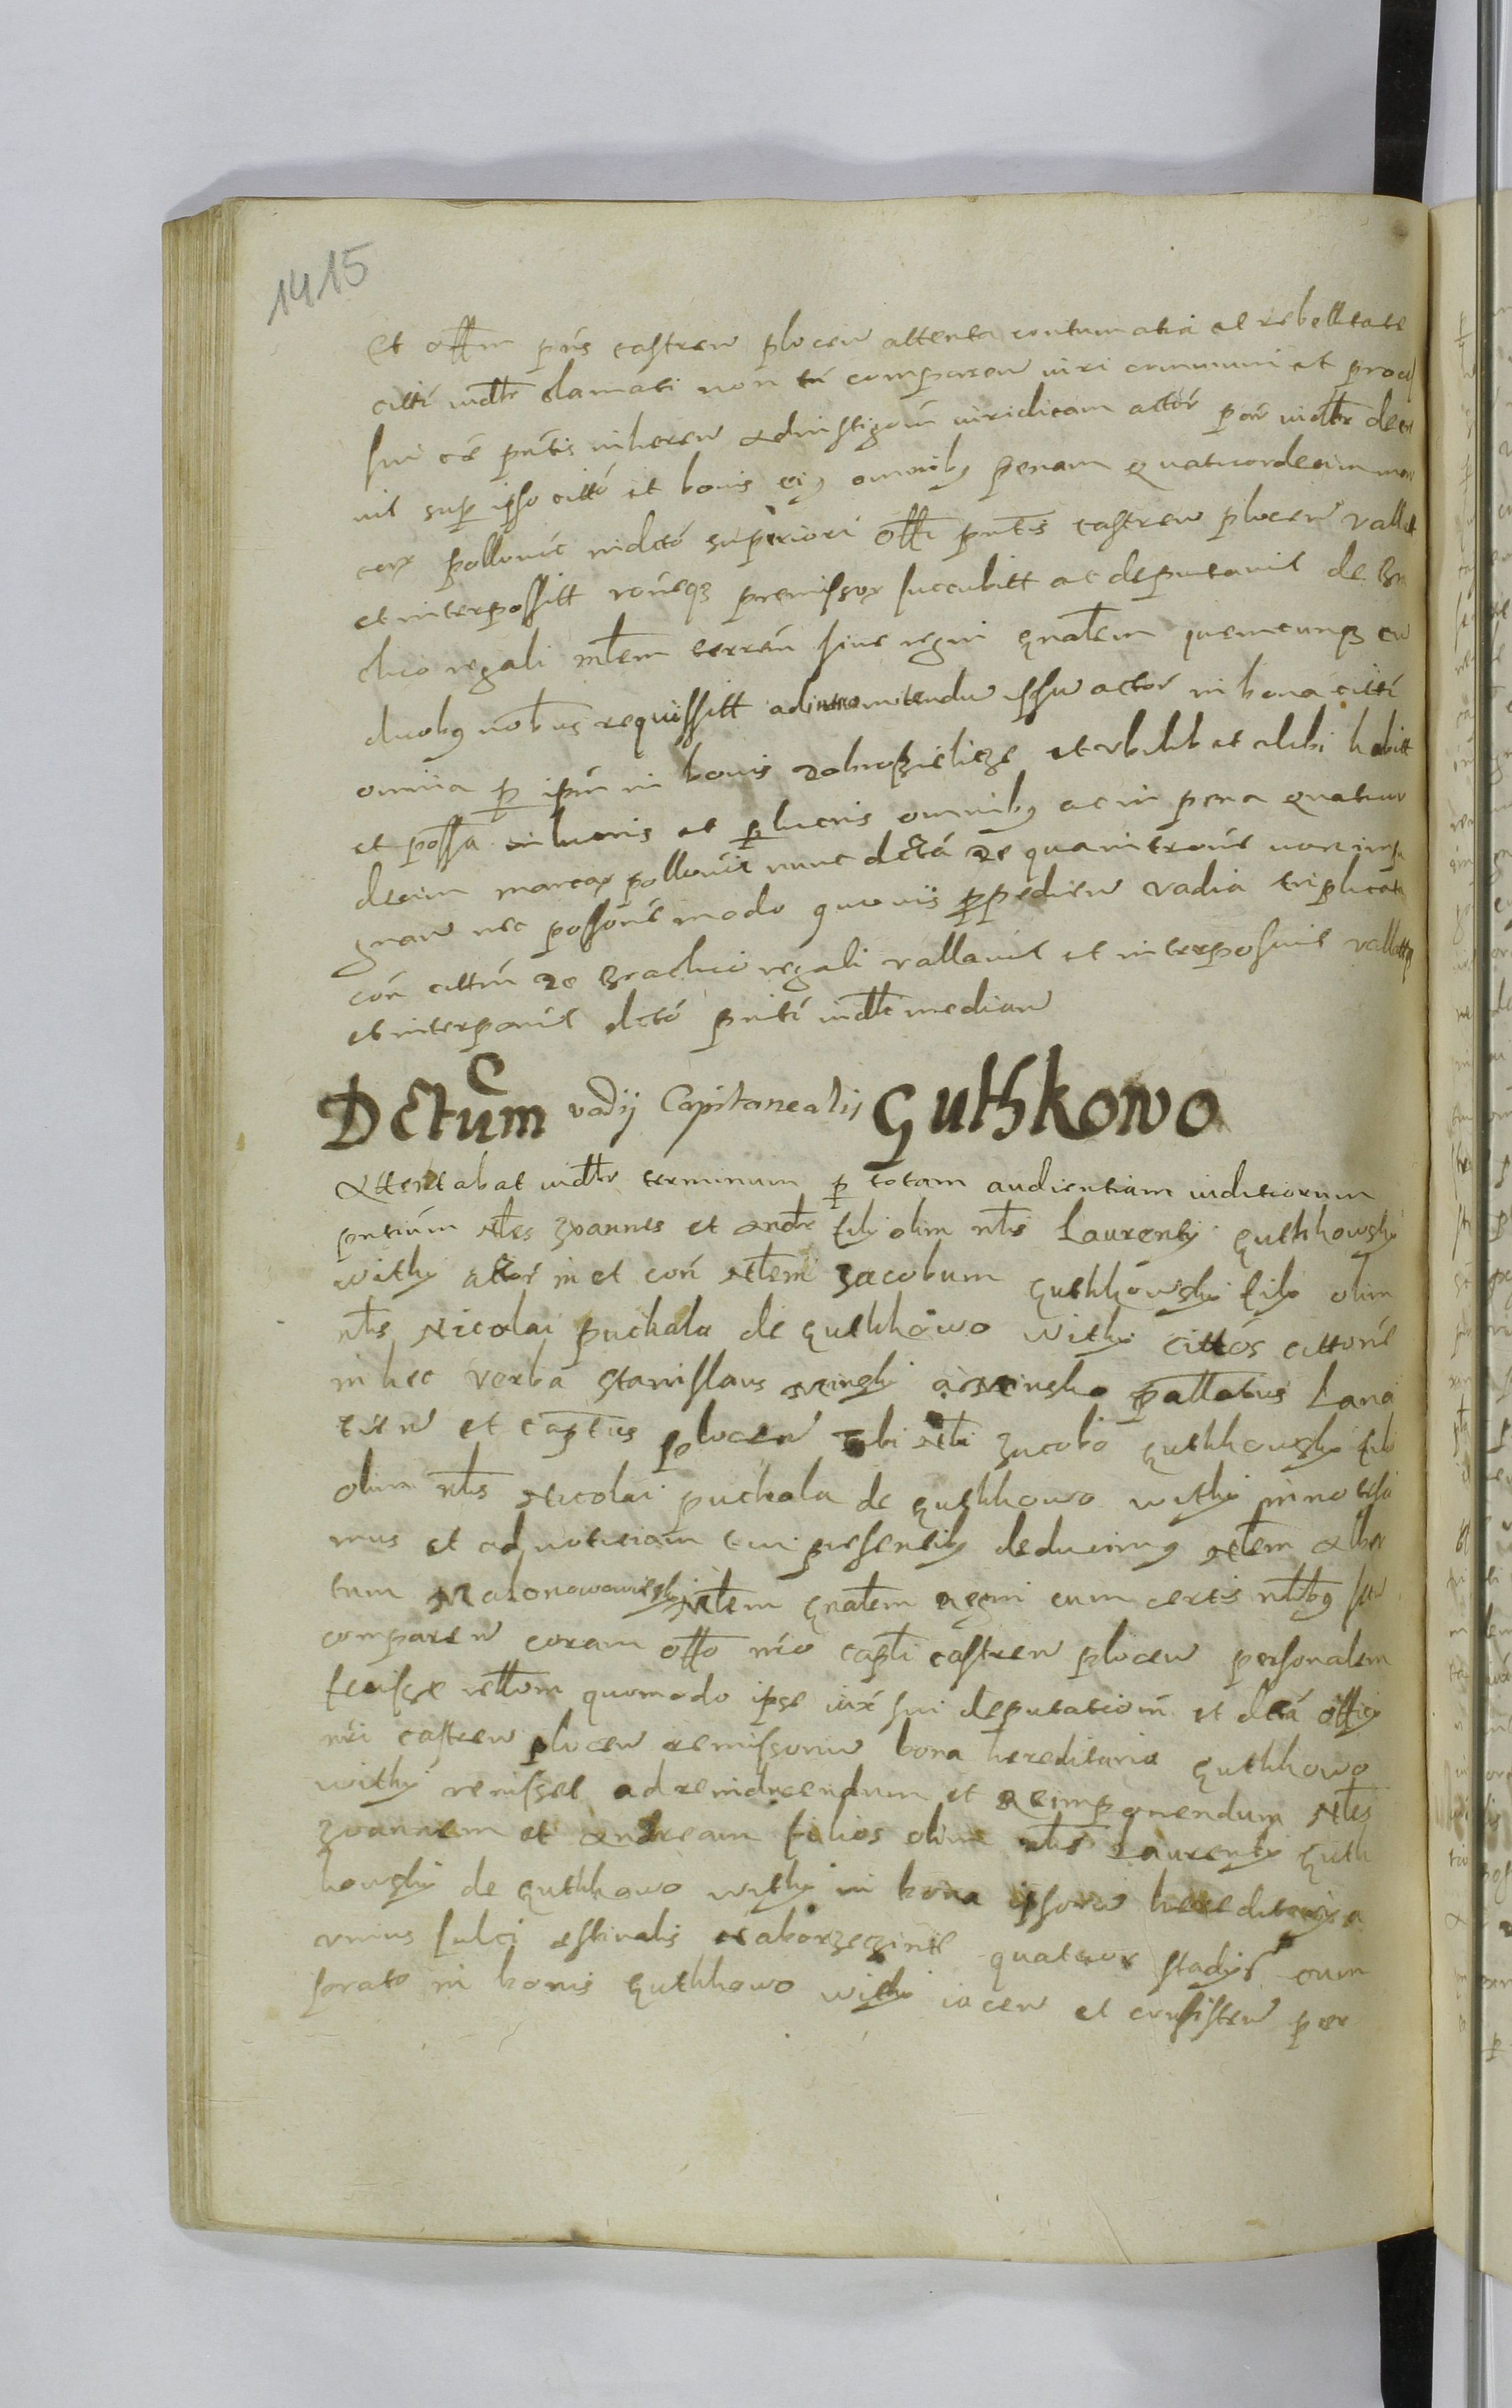 1415
Et offm pns castren plocen attenta contumatia ac rebellitate
citti iudtr clamati non tn comparen iuri communi et
sui cē pntis inheren Ad instigaom iuridicam actor par iudtr decre
vit sup ipso citto et bonis eiq omnibq penam quatuordecim mar
car pollonic iudcto superiori offi pntis castren plocen vallat
et interpossitt roneqz premissor succubitt ac deputavit de Bra
chio regali mltem terren sive regni gnalem quemcunqz cu
duobq nobibus requissitt ad intromitendu ipsu actor in bona citti
omnia p ipm in bonis et vbilib et alibi habitt
et possa in lucris et plucris omnibq ac in pena quatuor
decim marcar pollonic nunc dcta De quam trone non impu
gnan nec possone modo quovis ppedien vadia triplicata
con cittm De Brachio regali vallavit et interposuit vallatqz
et interponit dcto pnti iudtr median
Dctum vadij Capitanealis Guthkowo
Attentabat iudtr terminum p totam audientiam iuditiorum
pntium Nles Joannes et Andr filij olim nlis Laurentij Guthkowsky
withij actor in et con Nlem Jacobum Guthkowsky filij olim
nlis Nicolai puchala de Guthkowo withij cittos cittone
in hec verba Stanislaus Minsky a Minsko pallatius Lanci
tien et captus plocen tibi Nli Jacobo Guthkowsky filio
olim nlis Nicolai puchala de Guthkowo withij innotesci
mus et ad notitiam tui presentibq deducimq Nlem Alber
tum Malonowowiesky Mltem gnalem Regni cum certis nlibq suis
comparen coram offo nro capli castren plocen personalem
fecisse rellom quomodo ipse iux sui deputatiom et dcta officij
nri castren plocen remissoriu bona hereditaria Guthkowo
withij venisset ad reinducendum et Reimponendum Nles
Joannem et Andream filios olim nlis Laurentij Guth
kowsky de Guthkowo withij in bona ipsoru hereditaria
vnius sulci estivalis quatuor stadijs cum
prato in bonis Guthkowo withij iacen et consisten per